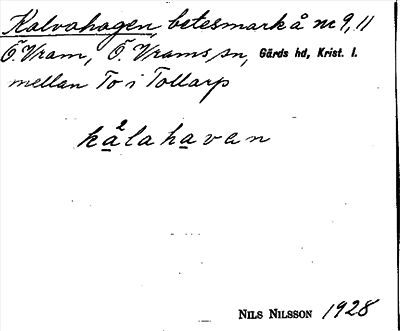 Kalvahagen, betesmark å nr 9, 11
Ö. Vram, Ö. Vrams sn, Gärds hd, Krist. l.
mellan To i Tollarp
kålahavan
NILS NILSSON 1928